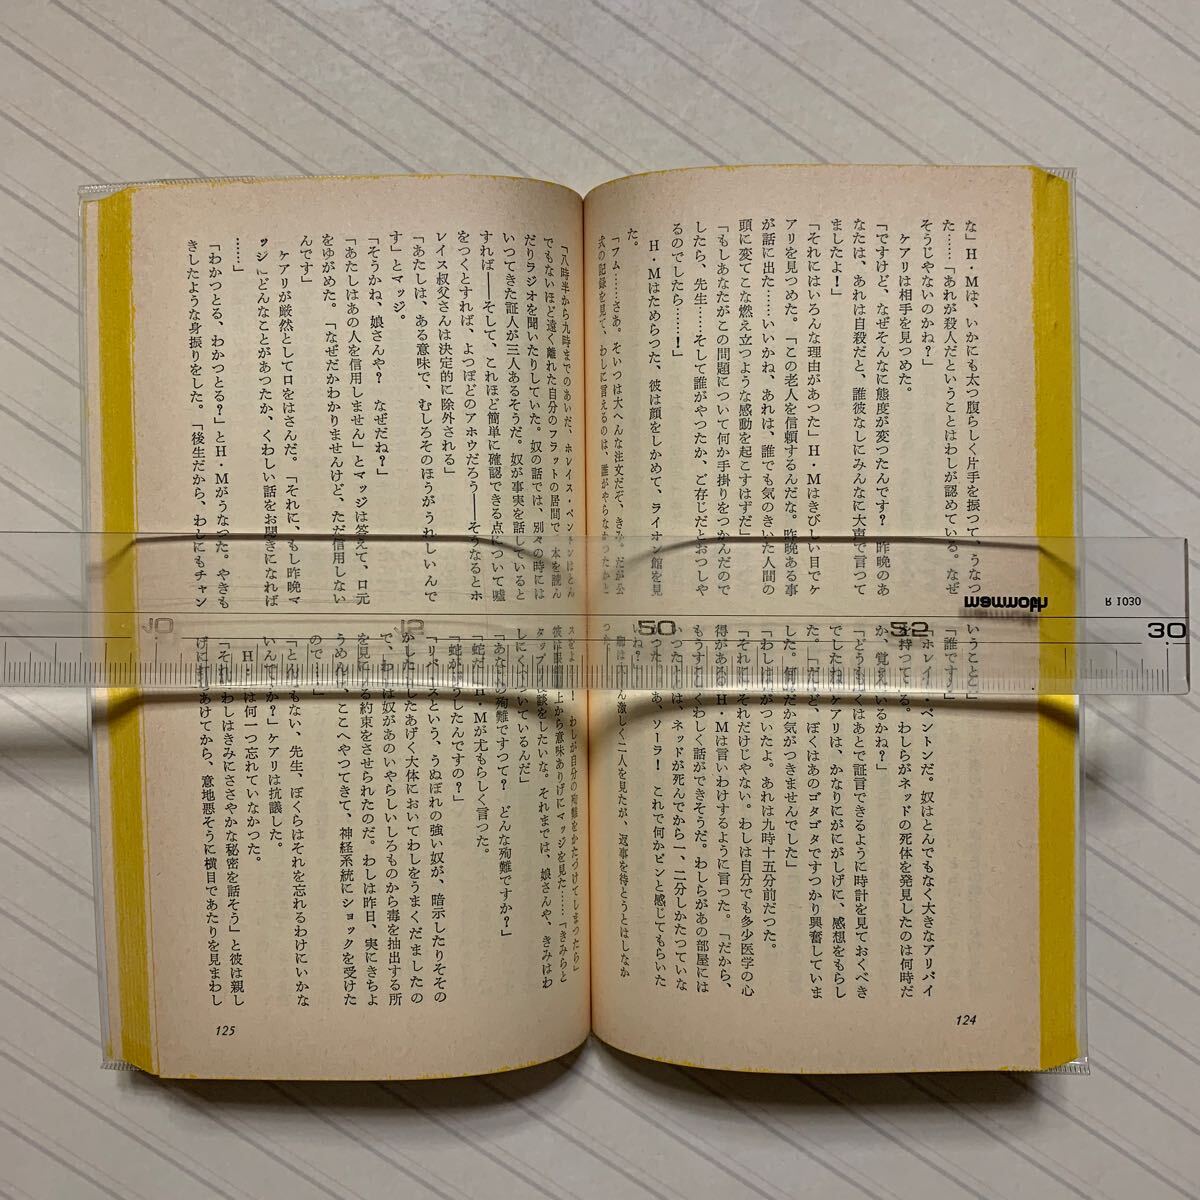 な」H・Mは、いかにも太つ腹らしく片手を振つて、うなつ
た……「あれが殺人だということはわしが認めている。なぜ
そうじゃないのかね?」
ケアリは相手を見つめた。
「ですけど、なぜそんなに態度が変つたんです? 昨晩のあ
なたは、あれは自殺だと、誰彼なしにみんなに大声で言つて
ましたよ!」
「それにはいろんな理由があつた」H・Mはきびしい目でケ
アリを見つめた。「この老人を信頼するんだな。昨晩ある事
が話に出た……いいかね、あれは、誰でも気のきいた人間の
頭に変てこな燃え立つような感動を起こすはずだ」
「もしあなたがこの問題について何か手掛りをつかんだので
したら、先生……そして誰がやつたか、ご存じだとおつしや
るのでしたら……!」
H・Mはためらつた、彼は顔をしかめて、ライオン館を見
た。
「フム……さあ。そいつは大へんな注文だぞ、きみ。だが公
式の記録を見て、わしに言えるのは、誰がやらなかつたかと
いうことだ」
「誰です」
「ホレイス・ベントンだ。奴はとんでもなく大きなアリバイ
を持つてる。わしらがネッドの死体を発見したのは何時だ
か、覚えているかね?」
「どうもぼくはあとで証言できるように時計を見ておくべき
でしたね」ケアリは、かなりにがにがしげに、感想をもらし
た。「だけど、ぼくはあのゴタゴタですつかり興奮していま
した。何だか気がつきませんでした」
「わしは気がついたよ。あれは九時十五分前だつた。
「それに、それだけじゃない。わしは自分でも多少医学の心
得がある」H・Mは言いわけするように言つた。「だから、
もうすこしくわしく話ができそうだ。わしらがあの部屋には
いつたときは、ネッドが死んでから一、二分しかたつていな
かつた。さあ、ソーラ! これで何かピンと感じてもらいた
いね?」
たいへん激しく二人を見たが、返事を待とうとはしなか
つた。
「八時半から九時までのあいだ、ホレイス・ベントンはとん
でもないほど遠く離れた自分のフラットの居間で、本を読ん
だりラジオを聞いたりしていた。奴の話では、別々の時には
いつてきた証人が三人あるそうだ。奴が事実を話していると
すれば――そして、これほど簡単に確認できる点について嘘
をつくとすれば、よつぽどのアホウだろう――そうなるとホ
レイス叔父さんは決定的に除外される」
「あたしは、ある意味で、むしろそのほうがうれしいんで
す」とマッジ。
「そうかね、娘さんや? なぜだね?」
「あたしはあの人を信用しません」とマッジは答えて、口元
をゆがめた。「なぜだかわかりませんけど、ただ信用しない
んです」
ケアリが厳然として口をはさんだ。「それに、もし昨晩マ
ッジにどんなことがあつたか、くわしい話をお聞きになれば
……」
「わかつとる、わかつとる?」とH・Mがうなつた。やきも
きしたような身振りをした。「後生だから、わしにもチャン
スをよこせ! わしが自分の殉難をかたづけてしまつたら」
彼は眼鏡の上から意味ありげにマッジを見た……「きみらと
タップリ相談をしたいな。それまでは、娘さんや、きみはわ
しにくつついているんだ」
「あなたの殉難ですつて? どんな殉難ですか?」
「蛇だ」H・Mが尤もらしく言つた。
「蛇がどうしたんですの?」
「リパースという、うぬぼれの強い奴が、暗示したりそその
かしたりしたあげく大体においてわしをうまくだましたの
で、わしは奴があのいやらしいしろものから毒を抽出する所
を見にくる約束をさせられたのだ。わしは昨日、実にきちよ
うめんに、ここへやつてきて、神経系統にショックを受けた
ので……」
「とんでもない、先生、ぼくらはそれを忘れるわけにいかな
いんですか?」ケアリは抗議した。
H・Mは何一つ忘れていなかつた。
「それで、わしはきみにささやかな秘密を話そう」と彼は親し
げにまあけてから、意地悪そうに横目であたりを見まわし
124
125
mammoth
R 1030
10
12
50
52
30